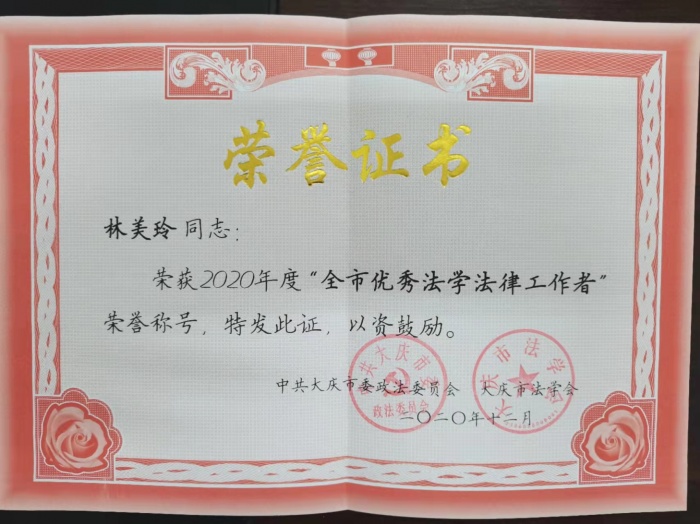 荣誉证书
林美玲同志：
荣获2020年度“全市优秀法学法律工作者”
荣誉称号，特发此证，以资鼓励。
中共大庆市委政法委员会 大庆市法学会
二〇二〇年十二月
中共大庆市委
政法委员会
大庆市法学会